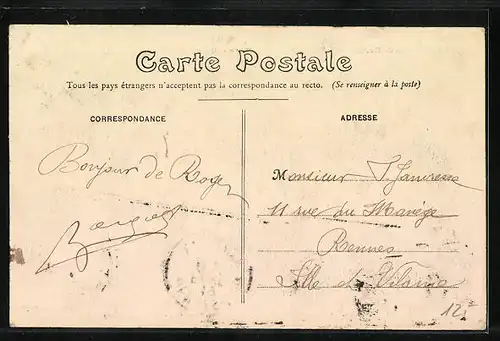 Carte Postale
Tous les pays étrangers n'acceptent pas la correspondance au recto. (Se renseigner à la poste)
CORRESPONDANCE
ADRESSE
Bonjour de
Monsieur J.
11 rue du Manège
Rennes
Ille et Vilaine
12